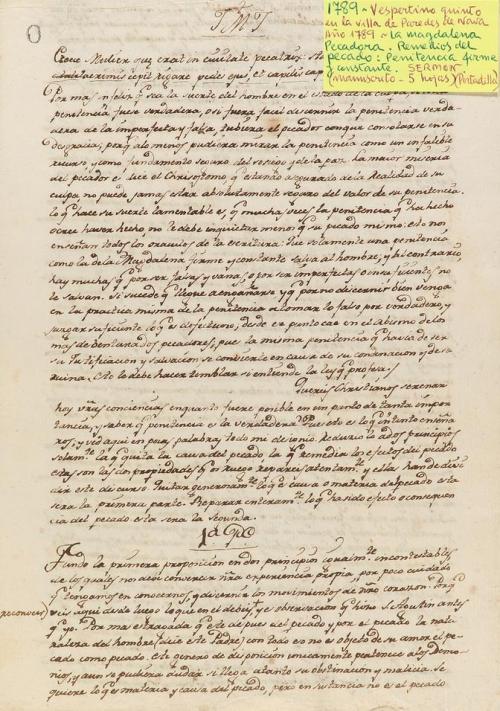 1789 - Vespertino quinto
en la villa de Paredes de Nava
Año 1789 - La magdalena
Pecadora. Remedios del
pecado: Penitencia firme
y constante. SERMON
(manuscrito - 5 hojas) (Portadilla)
JMJ
Ecce Mulier quæ erat in civitate peccatrix
cepit rigare pedes ejus, et capillis cap
Por mas infeliz q.e sea la suerte del hombre en el estado de la culpa
penitencia fuese verdadera, o si fuera facil discernir la penitencia verda-
dera de la imperfecta y falsa, tubiera el pecador con que consolarse en su
desgracia; pero a lo menos pudiera mirar la penitencia como un infalible
recurso y como fundamento seguro del sosiego y de la paz. La maior miseria
del pecador es dice el Chrisostomo q.e estando asegurado de la Realidad de su
culpa no puede jamas estar absolutamente seguro del valor de su penitencia.
lo q.e hace su suerte lamentable es, q.e muchas veces la penitencia q.e ha hecho
o cree haver hecho no le debe inquietar menos q.e su pecado mismo: esto nos
enseñan todos los oraculos de la escritura: Que solamente una penitencia
como la de la Magdalena firme y constante salva al hombre, y al contrario
hay muchas q.e por ser falsas y vanas o por ser imperfectas e insuficientes no
le salvan. Si sucede q.e llegue a engañarse y q.e por no discernir bien venga
en la practica misma de la penitencia a tomar lo falso por verdadero, y
juzgar suficiente lo q.e es defectuoso, desde ese punto cae en el abismo de los
mas desventurados pecadores, pues la misma penitencia q.e havia de ser
su Justificacion y salvacion se convierte en causa de su condenacion y de su
ruina. Esto le debe hacer temblar si entiende la ley q.e profesa.
Quereis Christianos serenar
hoy vras conciencias en quanto fuere posible en un punto de tanta impor-
tancia, y saber q.e penitencia es la verdadera? Pues esto es lo q.e intento enseña-
ros, y ved aqui en pocas palabras todo mi designio. Reducirlo a dos principios
solam.te lo q.e quita la causa del pecado, lo q.e remedia los efectos del pecado
estas son las dos propiedades q.e os ruego repareis atentam.te y ellas han de divi-
dir este discurso. Quitar generosam.te lo q.e es causa o materia del pecado esta
sera la primera parte. Reparar enteram.te lo q.e ha sido efecto o consequen-
cia del pecado esta sera la segunda.
1.a P.te
Fundo la primera proposicion en dos principios igualm.te incontestables
de los quales nos debe convencer nra experiencia propia, por poco cuidado
q.e tengamos en conocernos, y discernir los movimientos de nro corazon. Por q.e
reconocer
veis aqui desde luego lo que en el debeis, y es observacion q.e hizo S. Agustin antes
q.e yo. Por mas estragada q.e este despues del pecado y por el pecado la natu-
raleza del hombre (dice este Padre) con todo eso no es objeto de su amor el pe-
cado como pecado. Este genero de disposicion unicamente pertenece a los Demo-
nios, y aun se pudiera dudar si llega a tanto su obstinacion y malicia. Se
quiere lo q.e es materia y causa del pecado, pero en sustancia no es el pecado